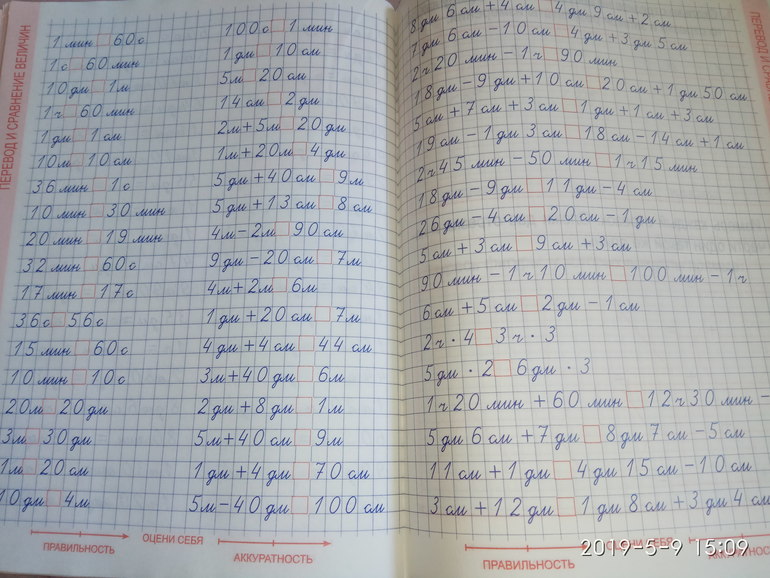 ПЕРЕВОД И СРАВНЕНИЕ ВЕЛИЧИН
1 мин□60с
1с□60 мин
10 дм□1м
1ч□60 мин
1 дм□1 см
10м□10 см
36 мин□1с
10 мин□30 мин
20 мин□19 мин
32 мин□60с
17 мин□17с
36с□56с
15 мин□60с
10 мин□10с
20м□20 дм
3м□30 дм
1м□20 см
10 дм□4м
100с□1 мин
1 дм□10 см
5м□20 см
14 см□2 дм
2м+5м□20 дм
1м+20м□4 дм
5 дм+40 см□9м
5 дм+13 см□8 см
4м-2м□90 см
9 дм-20 см□7м
4м+2м□6м
1 дм+20 см□7м
4 дм+4 см□44 см
3м+40 дм□6м
2 дм+8 дм□1м
5м+40 см□9м
1 дм+4 дм□70 см
5м-40 дм□100 см
ПРАВИЛЬНОСТЬ
ОЦЕНИ СЕБЯ
АККУРАТНОСТЬ
8 дм 6 см+4 см□4 дм 9 см+2 см
7 дм 6 см-10 см□4 дм+3 дм 5 см
2ч 20 мин-1ч□90 мин
18 дм-9 дм+10 см□20 см+1 дм 50 см
5 см+7 см+3 см□1 дм+1 см+3 см
19 см-1 дм 3 см□18 см-14 см+1 см
2ч 45 мин-50 мин□1ч 15 мин
18 дм-9 дм□11 дм-4 см
26 дм-4 см□20 см-1 дм
5 см+3 см□9 см+3 см
90 мин-1ч 10 мин□100 мин-1ч
6 см+5 см□2 дм-1 см
2ч·4□3ч·3
5 дм·2□6 дм·3
1ч 20 мин+60 мин□12ч 30 мин-
5 дм 6 см+7 дм□8 дм 7 см-5 см
11 см+1 дм□4 дм 15 см-10 см
3 см+12 дм□1 дм 8 см+3 дм 4 см
ПРАВИЛЬНОСТЬ
ОЦЕНИ СЕБЯ
ПЕРЕВОД И
2019-5-9 15:09